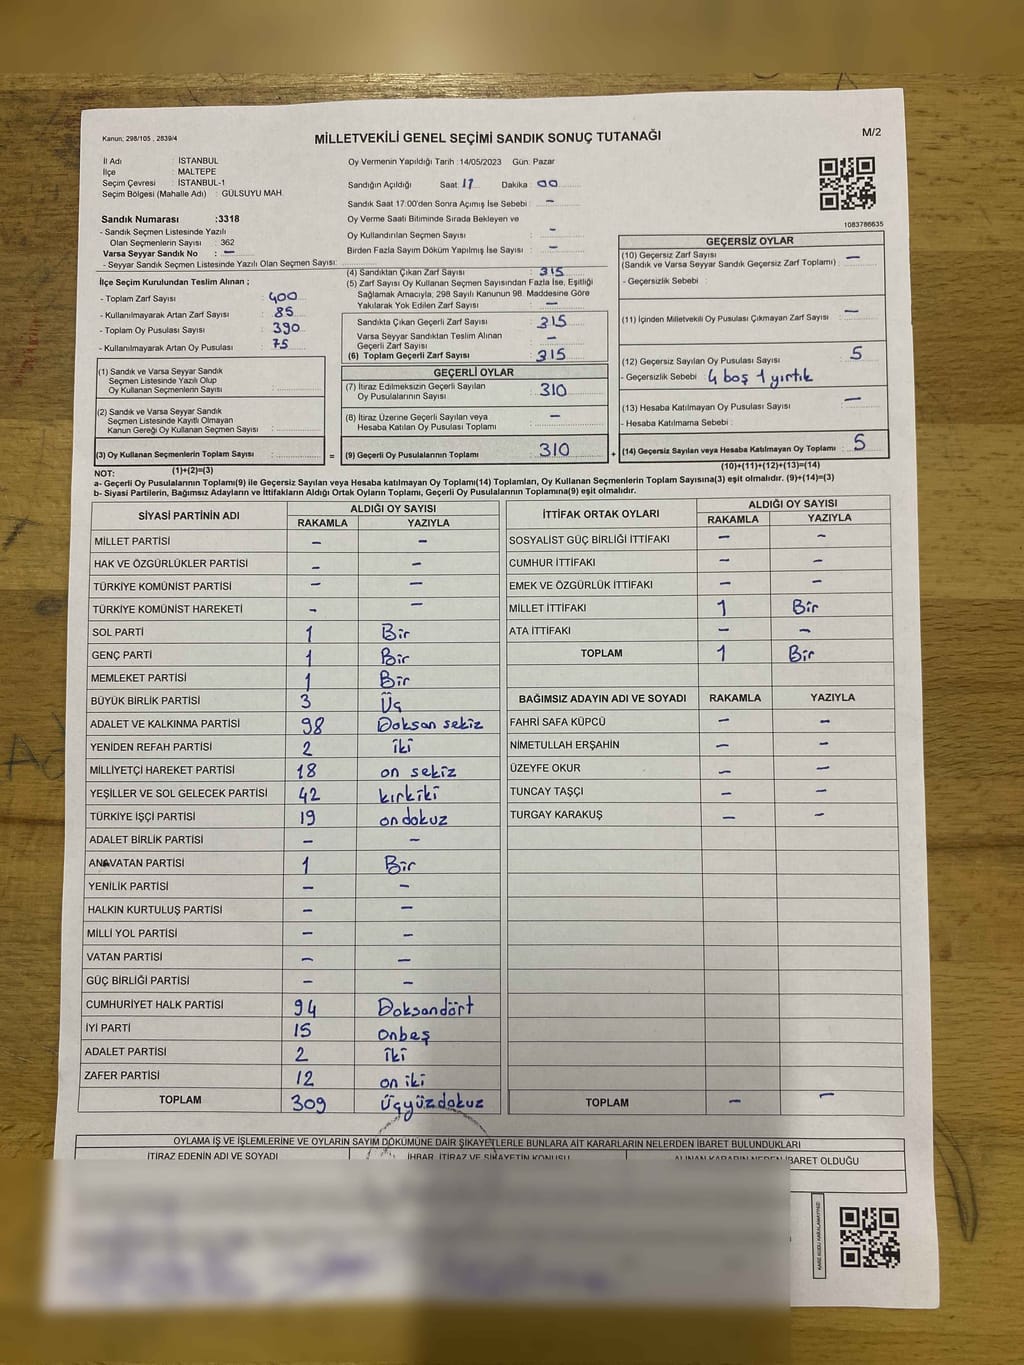 Kanun; 298/105 , 2839/4
MİLLETVEKİLİ GENEL SEÇİMİ SANDIK SONUÇ TUTANAĞI
M/2
İl Adı : İSTANBUL
İlçe : MALTEPE
Seçim Çevresi : İSTANBUL-1
Seçim Bölgesi (Mahalle Adı) : GÜLSUYU MAH.
Sandık Numarası :3318
- Sandık Seçmen Listesinde Yazılı
Olan Seçmenlerin Sayısı : 362
Varsa Seyyar Sandık No : –
- Seyyar Sandık Seçmen Listesinde Yazılı Olan Seçmen Sayısı:
Oy Vermenin Yapıldığı Tarih :14/05/2023 Gün: Pazar
Sandığın Açıldığı Saat: 17 Dakika : 00
Sandık Saat 17:00'den Sonra Açımış İse Sebebi : –
Oy Verme Saati Bitiminde Sırada Bekleyen ve
Oy Kullandırılan Seçmen Sayısı : –
Birden Fazla Sayım Döküm Yapılmış İse Sayısı : –
1083786635
İlçe Seçim Kurulundan Teslim Alınan ;
- Toplam Zarf Sayısı : 400
- Kullanılmayarak Artan Zarf Sayısı : 85
- Toplam Oy Pusulası Sayısı : 390
- Kullanılmayarak Artan Oy Pusulası : 75
(1) Sandık ve Varsa Seyyar Sandık
Seçmen Listesinde Yazılı Olup
Oy Kullanan Seçmenlerin Sayısı :
(2) Sandık ve Varsa Seyyar Sandık
Seçmen Listesinde Kayıtlı Olmayan
Kanun Gereği Oy Kullanan Seçmen Sayısı :
(3) Oy Kullanan Seçmenlerin Toplam Sayısı :
(4) Sandıktan Çıkan Zarf Sayısı : 315
(5) Zarf Sayısı Oy Kullanan Seçmen Sayısından Fazla İse, Eşitliği
Sağlamak Amacıyla, 298 Sayılı Kanunun 98. Maddesine Göre
Yakılarak Yok Edilen Zarf Sayısı : –
Sandıkta Çıkan Geçerli Zarf Sayısı : 315
Varsa Seyyar Sandıktan Teslim Alınan
Geçerli Zarf Sayısı : –
(6) Toplam Geçerli Zarf Sayısı : 315
GEÇERLİ OYLAR
(7) İtiraz Edilmeksizin Geçerli Sayılan
Oy Pusulalarının Sayısı : 310
(8) İtiraz Üzerine Geçerli Sayılan veya
Hesaba Katılan Oy Pusulası Toplamı : –
= (9) Geçerli Oy Pusulalarının Toplamı : 310 +
GEÇERSİZ OYLAR
(10) Geçersiz Zarf Sayısı
(Sandık ve Varsa Seyyar Sandık Geçersiz Zarf Toplamı) : –
- Geçersizlik Sebebi :
(11) İçinden Milletvekili Oy Pusulası Çıkmayan Zarf Sayısı : –
(12) Geçersiz Sayılan Oy Pusulası Sayısı : 5
- Geçersizlik Sebebi : 4 boş 1 yırtık
(13) Hesaba Katılmayan Oy Pusulası Sayısı : –
- Hesaba Katılmama Sebebi :
(14) Geçersiz Sayılan veya Hesaba Katılmayan Oy Toplamı : 5
NOT: (1)+(2)=(3)
(10)+(11)+(12)+(13)=(14)
a- Geçerli Oy Pusulalarının Toplamı(9) ile Geçersiz Sayılan veya Hesaba katılmayan Oy Toplamı(14) Toplamları, Oy Kullanan Seçmenlerin Toplam Sayısına(3) eşit olmalıdır. (9)+(14)=(3)
b- Siyasi Partilerin, Bağımsız Adayların ve İttifakların Aldığı Ortak Oyların Toplamı, Geçerli Oy Pusulalarının Toplamına(9) eşit olmalıdır.
SİYASİ PARTİNİN ADI ALDIĞI OY SAYISI
RAKAMLA YAZIYLA
MİLLET PARTİSİ – –
HAK VE ÖZGÜRLÜKLER PARTİSİ – –
TÜRKİYE KOMÜNİST PARTİSİ – –
TÜRKİYE KOMÜNİST HAREKETİ – –
SOL PARTİ 1 Bir
GENÇ PARTİ 1 Bir
MEMLEKET PARTİSİ 1 Bir
BÜYÜK BİRLİK PARTİSİ 3 Üç
ADALET VE KALKINMA PARTİSİ 98 Doksan sekiz
YENİDEN REFAH PARTİSİ 2 iki
MİLLİYETÇİ HAREKET PARTİSİ 18 on sekiz
YEŞİLLER VE SOL GELECEK PARTİSİ 42 kırkiki
TÜRKİYE İŞÇİ PARTİSİ 19 ondokuz
ADALET BİRLİK PARTİSİ – –
ANAVATAN PARTİSİ 1 Bir
YENİLİK PARTİSİ – –
HALKIN KURTULUŞ PARTİSİ – –
MİLLİ YOL PARTİSİ – –
VATAN PARTİSİ – –
GÜÇ BİRLİĞİ PARTİSİ – –
CUMHURİYET HALK PARTİSİ 94 Doksandört
İYİ PARTİ 15 onbeş
ADALET PARTİSİ 2 iki
ZAFER PARTİSİ 12 on iki
TOPLAM 309 Üçyüzdokuz
İTTİFAK ORTAK OYLARI ALDIĞI OY SAYISI
RAKAMLA YAZIYLA
SOSYALİST GÜÇ BİRLİĞİ İTTİFAKI – –
CUMHUR İTTİFAKI – –
EMEK VE ÖZGÜRLÜK İTTİFAKI – –
MİLLET İTTİFAKI 1 Bir
ATA İTTİFAKI – –
TOPLAM 1 Bir
BAĞIMSIZ ADAYIN ADI VE SOYADI RAKAMLA YAZIYLA
FAHRİ SAFA KÜPCÜ – –
NİMETULLAH ERŞAHİN – –
ÜZEYFE OKUR – –
TUNCAY TAŞÇI – –
TURGAY KARAKUŞ – –
TOPLAM – –
OYLAMA İŞ VE İŞLEMLERİNE VE OYLARIN SAYIM DÖKÜMÜNE DAİR ŞİKAYETLERLE BUNLARA AİT KARARLARIN NELERDEN İBARET BULUNDUKLARI
İTİRAZ EDENİN ADI VE SOYADI İHBAR, İTİRAZ VE ŞİKAYETİN KONUSU ALINAN KARARIN NEDEN İBARET OLDUĞU
KARE KODU KARALAMAYINIZ!